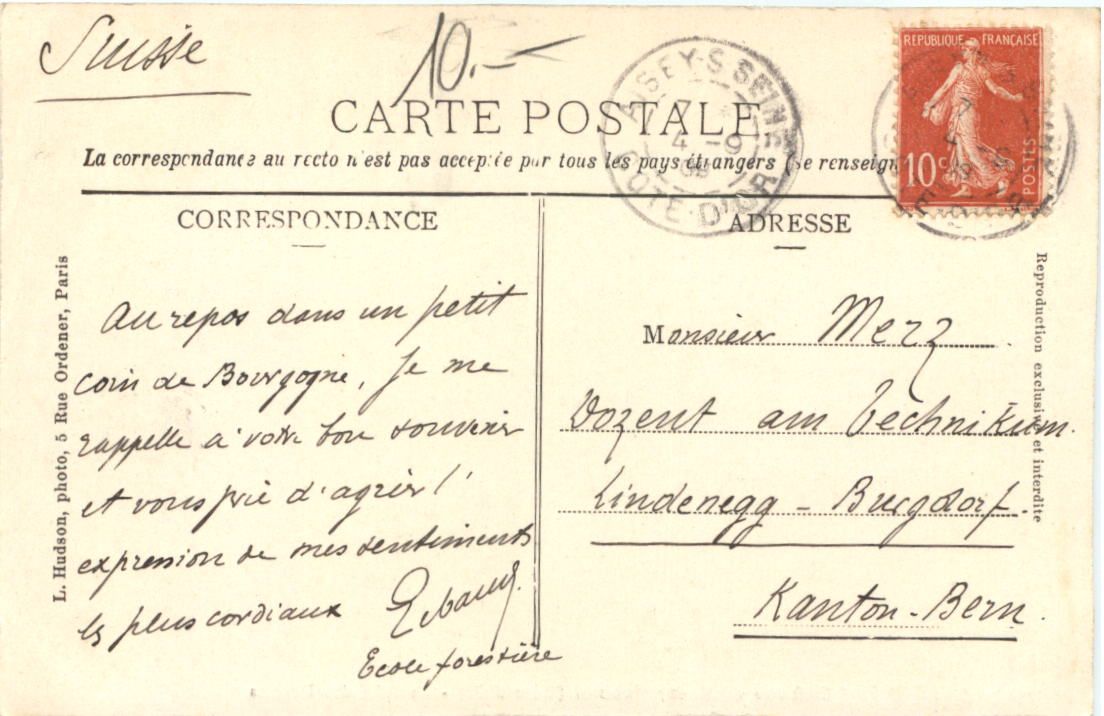 Suisse
10.-
CARTE POSTALE
La correspondance au recto n'est pas acceptée par tous les pays étrangers (Se renseign
CORRESPONDANCE
ADRESSE
AISEY-S-SEINE
7
4 - 9
09
COTE-D'OR
REPUBLIQUE FRANÇAISE
10c
POSTES
L. Hudson, photo, 5 Rue Ordener, Paris
Au repos dans un petit
coin de Bourgogne, je me
rappelle à votre bon souvenir
et vous prie d'agréer l'
expression de mes sentiments
les plus cordiaux
Ecole forestière
Monsieur Merz
Dozent am Technikum.
Lindenegg - Burgdorf.
Kanton-Bern.
Reproduction exclusive et interdite